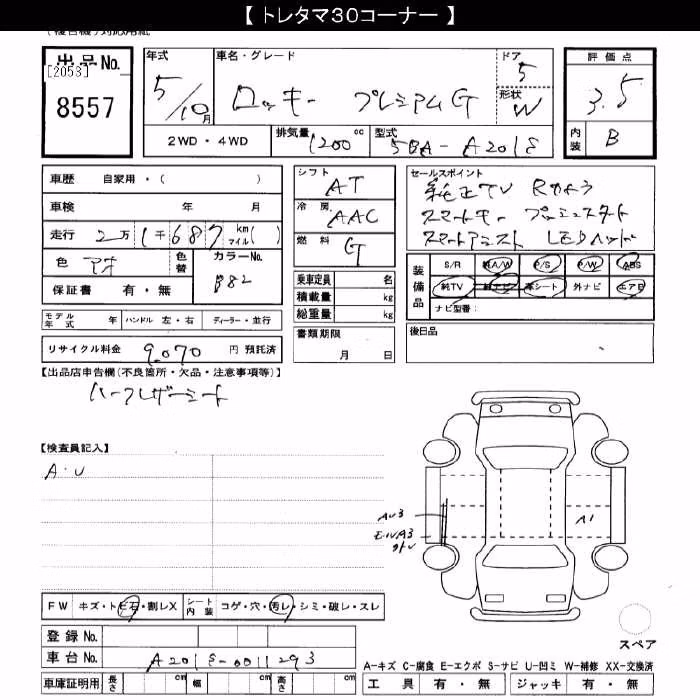 【 トレタマ30コーナー 】
出品No.
[2053]
8557
年式
5/10月
車名・グレード
ロッキー プレミアムG
ドア
5
形状
W
評価点
3.5
内装
B
2WD・4WD
排気量
1200cc
型式
5BA-A201S
車歴 自家用・( )
車検 年 月
走行 2万1千687 km マイル( )
色 アオ
色替
カラーNo.
B82
保証書 有・無
モデル年式 年
ハンドル 左・右
ディーラー・並行
リサイクル料金 9,070 円 預託済
シフト
AT
冷房
AAC
燃料
G
乗車定員 名
積載量 kg
総重量 kg
書類期限
月 日
セールスポイント
純正TV Rカメラ
スマートキー プッシュスタート
スマートアシスト LEDヘッド
装備品
S/R 純A/W P/S P/W ABS
純TV 純ナビ 革シート 外ナビ エアB
ナビ型番:
後日品
【出品店申告欄(不良箇所・欠品・注意事項等)】
ハーフレザーシート
【検査員記入】
A・U
AU3
A1
FW キズ・トビ石・割レX
シート内装 コゲ・穴・汚レ・シミ・破レ・スレ
登録No.
車台No. A201S-0011293
車庫証明用 長さ cm 幅 cm 高さ cm
スペア
A-キズ C-腐食 E-エクボ S-サビ U-凹ミ W-補修 XX-交換済
工具 有・無 ジャッキ 有・無